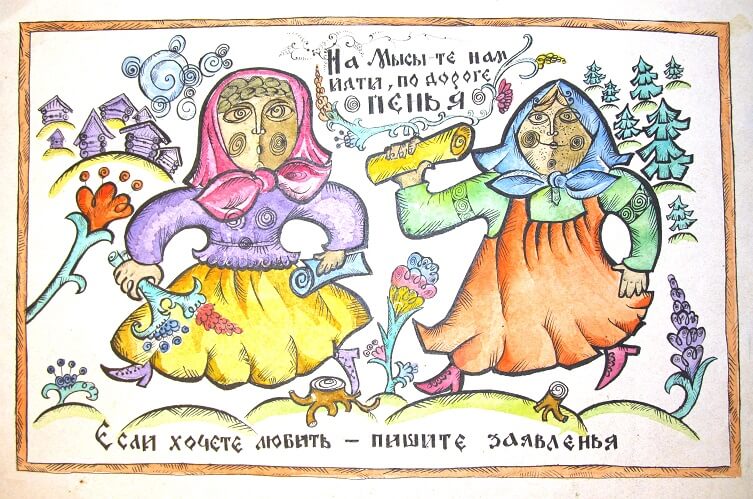 На Мысы-те нам
идти, по дороге
пенья
Если хочете любить – пишите заявленья